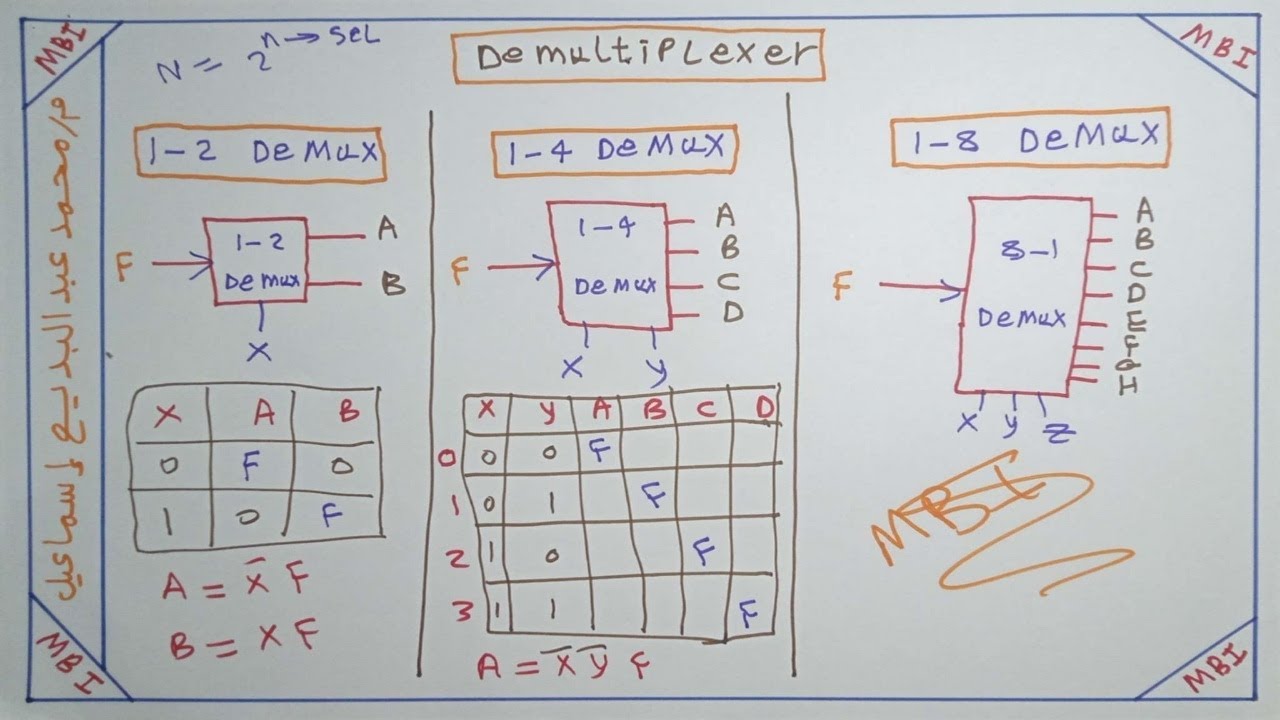 MBI
MBI
م/محمد عبد البديع إسماعيل
N = 2^n → sel
Demultiplexer
1-2 DeMux
F
1-2
Demux
A
B
X
X A B
0 F 0
1 0 F
A = X̅ F
B = X F
1-4 DeMux
F
1-4
Demux
A
B
C
D
X y
X y A B C D
0 0 0 F
1 0 1 F
2 1 0 F
3 1 1 F
A = X̅ y̅ F
1-8 DeMux
F
8-1
Demux
A
B
C
D
E
F
G
H
X y Z
MBI
MBI
MBI